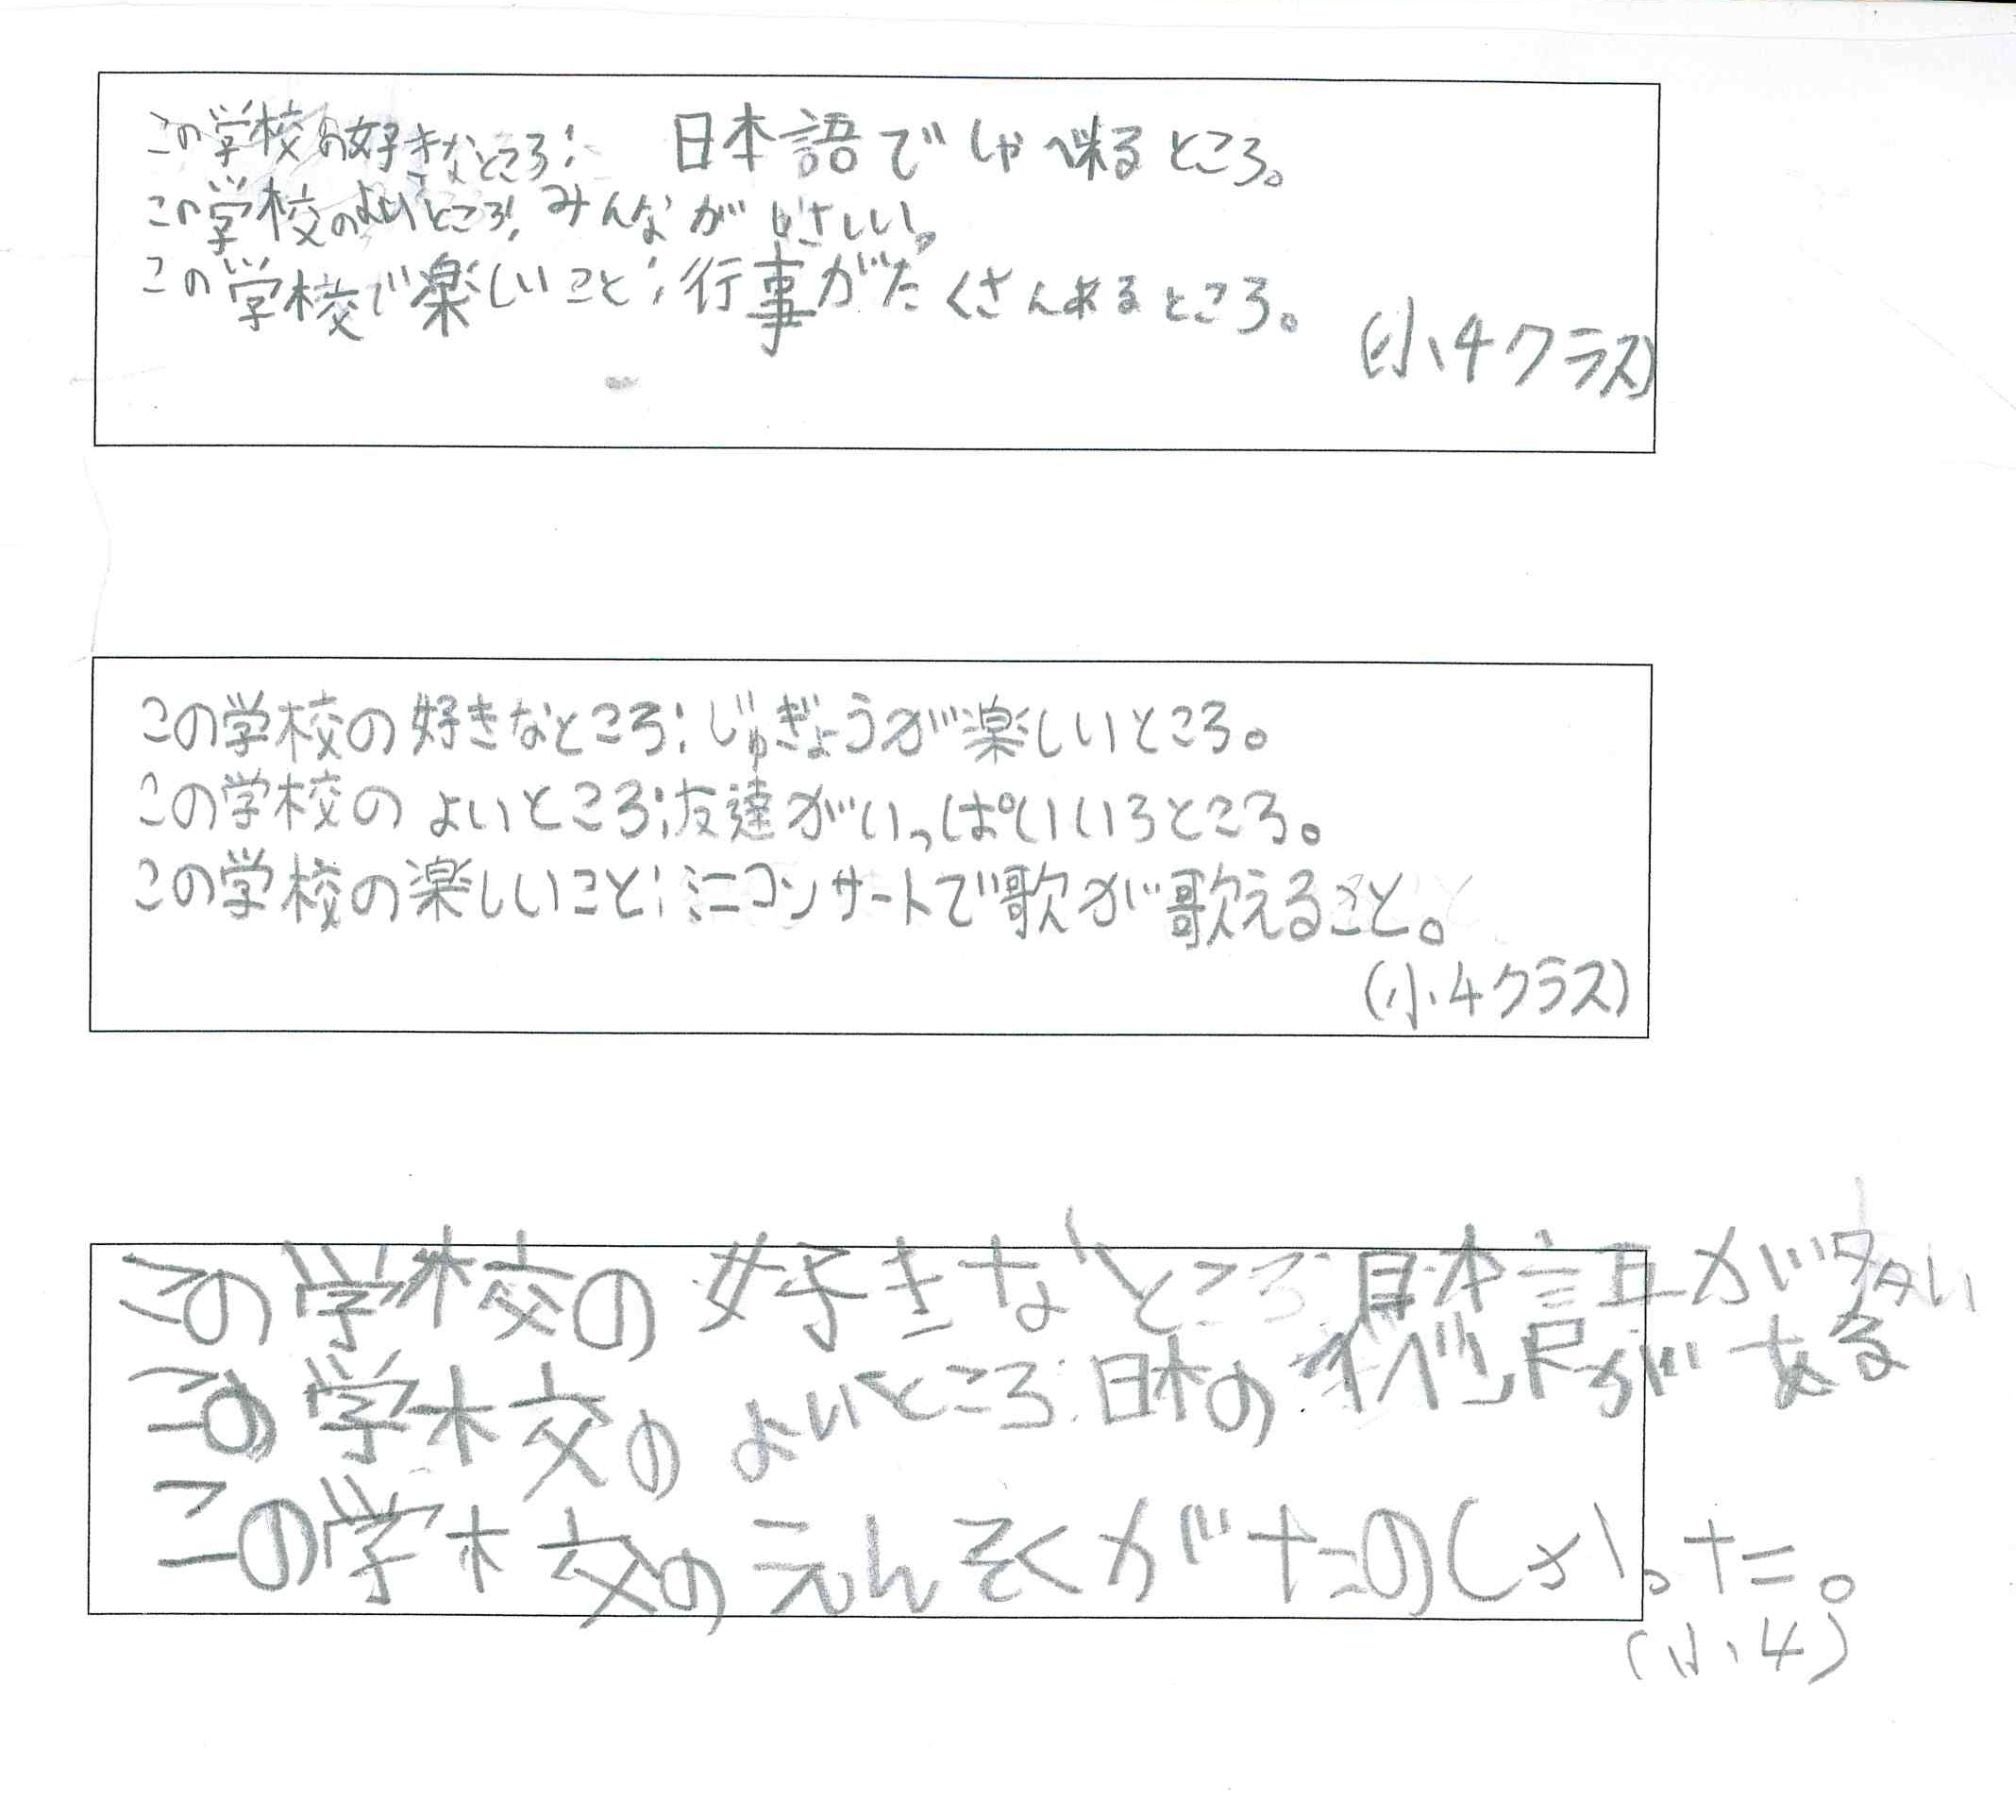 この学校の好きなところ：日本語でしゃべれるところ。
この学校のよいところ：みんながやさしい。
この学校で楽しいこと：行事がたくさんあるところ。
(小4クラス)
この学校の好きなところ：じゅぎょうが楽しいところ。
この学校のよいところ：友達がいっぱいいるところ。
この学校の楽しいこと：ミニコンサートで歌が歌えること。
(小4クラス)
この学校の好きなところ 日本語が多い
この学校のよいところ：日本のイベントがある
この学校のえんそくがたのしかった。
(小4)